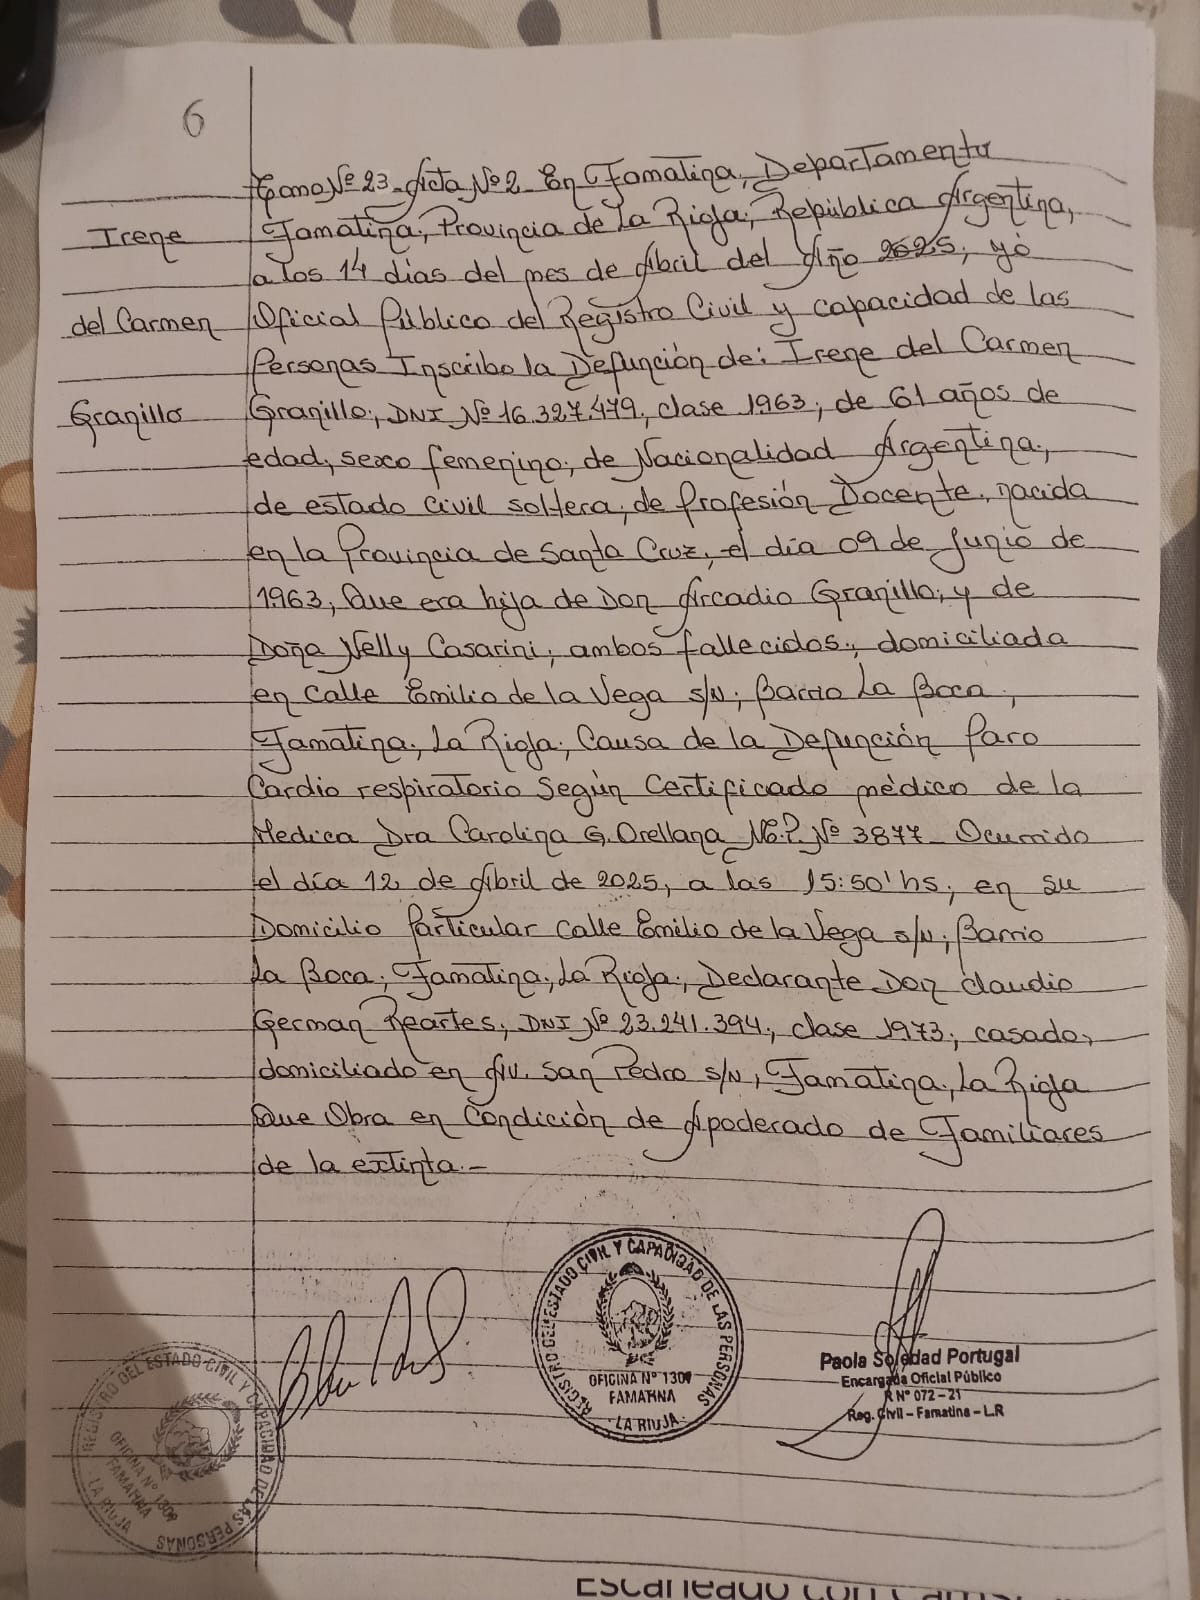 6
Irene
del Carmen
Granillo
Tomo Nº 23 - Acta Nº 2 - En Famatina, Departamento
Famatina, Provincia de La Rioja, República Argentina,
a los 14 dias del mes de Abril del Año 2025, yó
Oficial Público del Registro Civil y capacidad de las
Personas Inscribo la Defunción de: Irene del Carmen
Granillo, DNI Nº 16.327.479, clase 1963, de 61 años de
edad, sexo femenino, de Nacionalidad Argentina,
de estado Civil soltera, de Profesión Docente, nacida
en la Provincia de Santa Cruz, el día 09 de Junio de
1963, Que era hija de Don Arcadio Granillo, y de
Doña Nelly Casarini, ambos fallecidos, domiciliada
en Calle Emilio de la Vega s/N, Barrio La Boca,
Famatina, La Rioja, Causa de la Defunción Paro
Cardio respiratorio Según Certificado médico de la
Medica Dra Carolina G. Orellana M.P. Nº 3877 - Ocurrido
el día 12 de Abril de 2025, a las 15:50' hs, en su
Domicilio Particular calle Emilio de la Vega s/N, Barrio
La Boca, Famatina, La Rioja, Declarante Don Claudio
German Reartes, DNI Nº 23.241.394, clase 1973, casado,
domiciliado en Av. San Pedro s/N, Famatina, La Rioja
Que Obra en Condición de Apoderado de Familiares
de la extinta.-
REGISTRO DEL ESTADO CIVIL Y CAPACIDAD DE LAS PERSONAS
OFICINA Nº 1309
FAMATINA
LA RIOJA
Paola Soledad Portugal
Encargada Oficial Público
R Nº 072-21
Reg. Civil - Famatina - L.R
REGISTRO DEL ESTADO CIVIL Y CAPACIDAD DE LAS PERSONAS
OFICINA Nº 1309
FAMATINA
LA RIOJA
Escaneado con